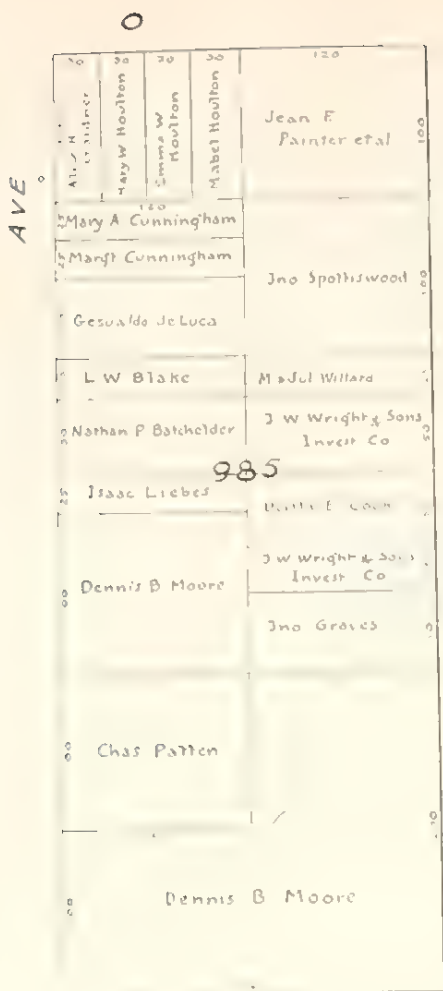 O
AVE
30
30
30
30
120
Gardner
Mary W Houlton
Emma W
Houlton
Mabel Houlton
Jean F
Painter et al
100
120
25
Mary A Cunningham
25
Margt Cunningham
Jno Spottiswood
100
Gesualdo de Luca
L W Blake
M & Jul Willard
50
Nathan P Batchelder
J W Wright & Sons
Invest Co
985
25
Isaac Liebes
E Cook
J W Wright & Sons
Invest Co
Dennis B Moore
Jno Graves
Chas Patten
Dennis B Moore